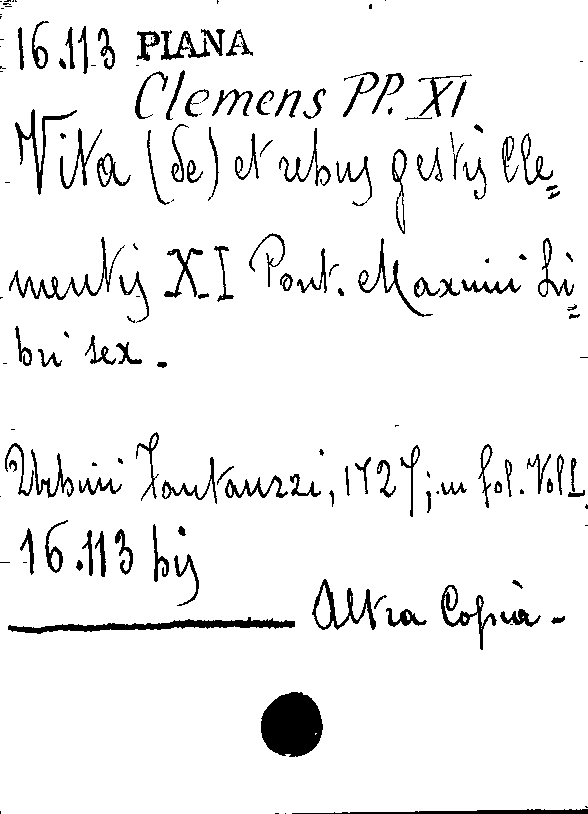 16.113 PIANA
Clemens PP. XI
Vita (de) et rebus gestis Cle=
mentis XI Pont. Maximi Li=
bri sex.
Urbini Fantauzzi, 1727; in fol. Vol 1.
16.113 bis
Altra Copia -